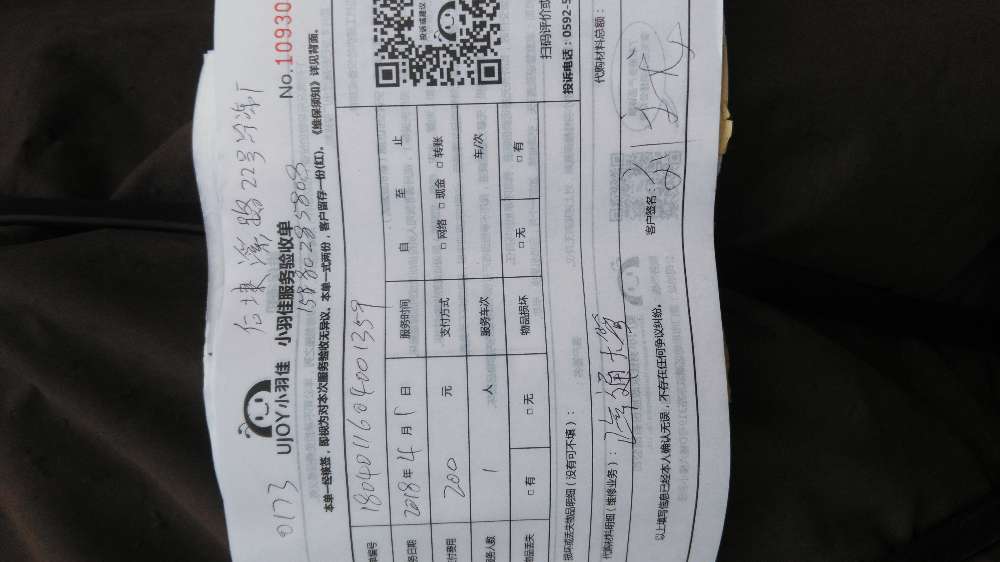 0173
22号
No.10930
UJOY小羽佳 小羽佳服务验收单
15880285808
本单一经核签，即视为对本次服务验收无异议。本单一式两份，客户留存一份(红)。《维保须知》详见背面。
单编号 1804011604001359
务日期 2018年4月1日 服务时间 自 至 止
付费用 200 元 支付方式 □网络 □现金 □转账
服务人数 1 人 服务车次 车/次
物品丢失 □有 □无 物品损坏 □无 □有
投诉或建议
扫码评价或
投诉电话：0592-5
损坏或丢失物品明细（没有可不填）：
代购材料明细（维修业务）： 疏通大管
代购材料总额：
以上填写信息已经本人确认无误，不存在任何争议纠纷。
客户签名：